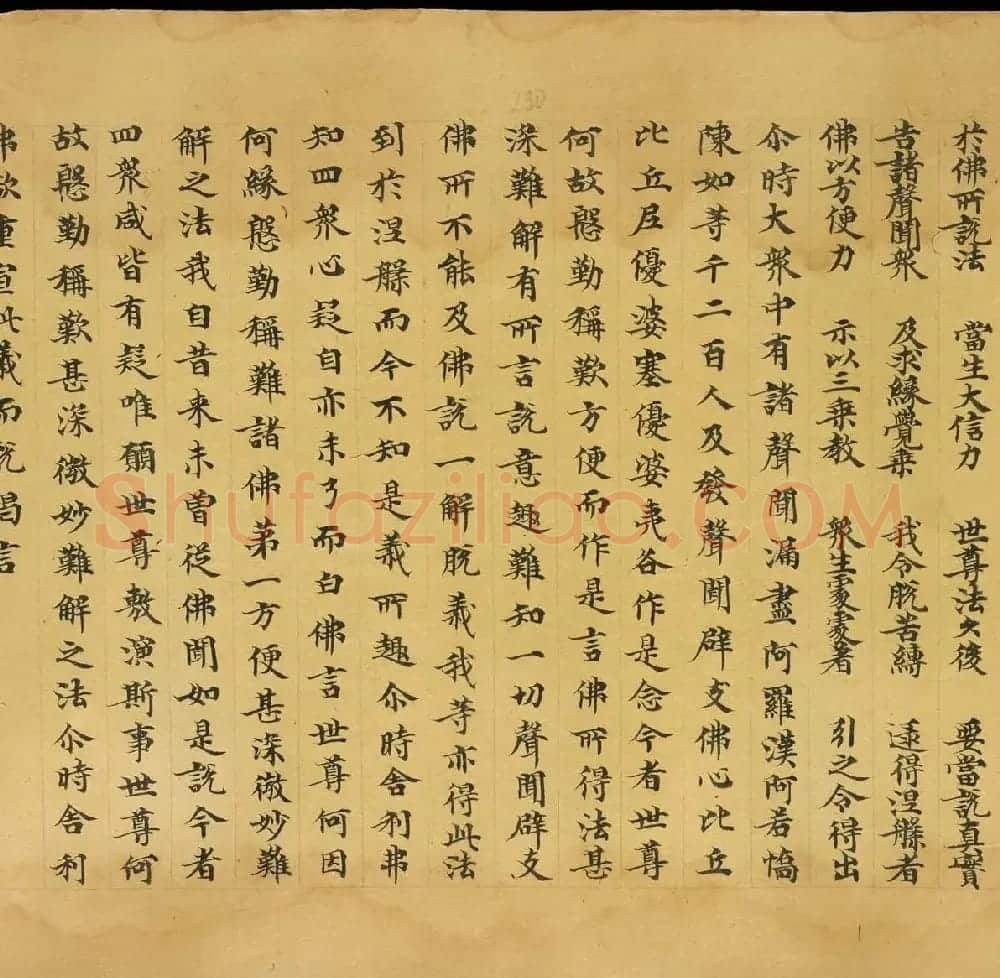 於佛所說法 當生大信力 世尊法久後 要當說真實
告諸聲聞衆 及求緣覺乘 我令脫苦縛 逮得涅槃者
佛以方便力 示以三乘教 衆生處處著 引之令得出
尒時大衆中有諸聲聞漏盡阿羅漢阿若憍
陳如等千二百人及發聲聞辟支佛心比丘
比丘尼優婆塞優婆夷各作是念今者世尊
何故慇勤稱歎方便而作是言佛所得法甚
深難解有所言說意趣難知一切聲聞辟支
佛所不能及佛說一解脫義我等亦得此法
到於涅槃而今不知是義所趣尒時舍利弗
知四衆心疑自亦未了而白佛言世尊何因
何緣慇勤稱難諸佛第一方便甚深微妙難
解之法我自昔来未曾從佛聞如是說今者
四衆咸皆有疑唯願世尊敷演斯事世尊何
故慇勤稱歎甚深微妙難解之法尒時舍利
弗欲重宣此義而說偈言
Shufaziliao.COM